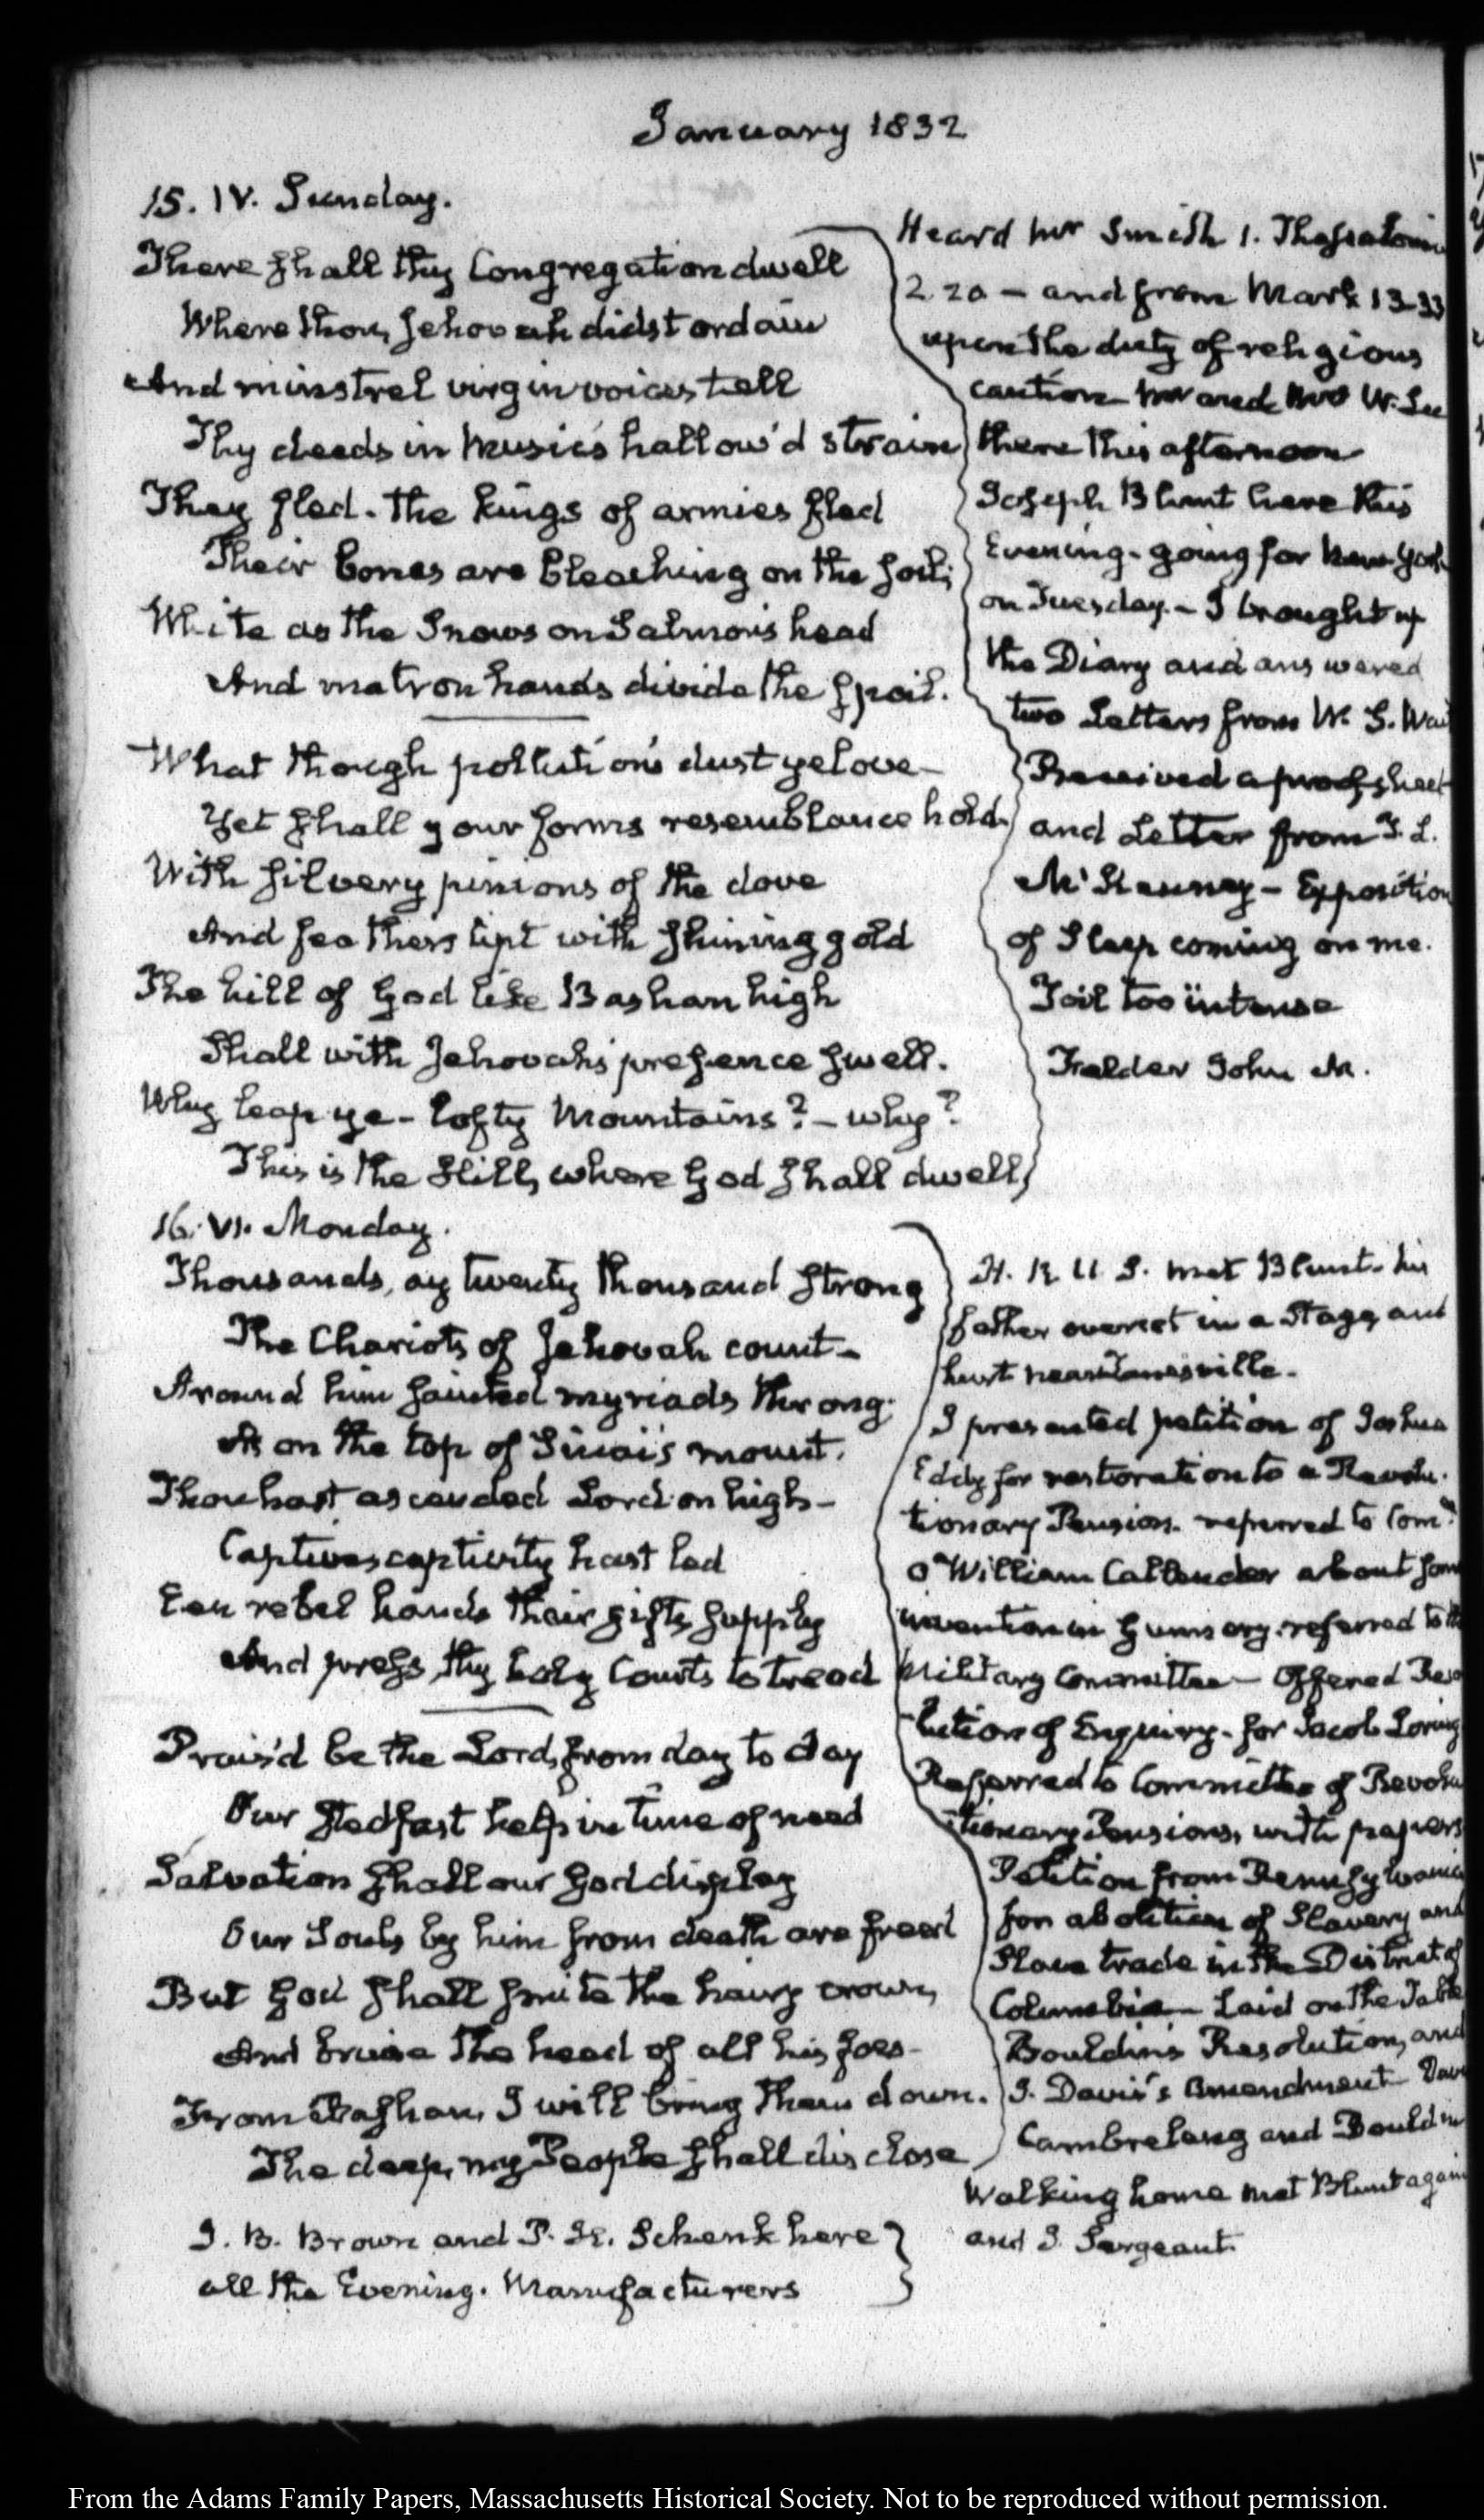 January 1832
15. IV. Sunday.
There shall thy Congregation dwell
Where thou, Jehovah didst ordain
And minstrel virgin voices tell
Thy deeds in Music's hallow'd strain
They fled. the kings of armies fled
Their bones are bleaching on the soil;
White as the Snows on Salmon's head
And matron hands divide the spoil.
What though pollution's dust ye love—
Yet shall your forms resemblance hold,
With silvery pinions of the dove
And feathers tipt with shining gold
The hill of God like Bashan high
Shall with Jehovah's presence swell.
Why leap ye — lofty Mountains? — why?
This is the Hill, where God shall dwell,
Heard Mr Smith 1. Thessaloni
2. 20 — and from Mark 13-33
upon the duty of religious
caution Mr and Mrs W. Lee
there this afternoon
Joseph Blunt here this
Evening. going for New-York
on Tuesday. — I brought up
the Diary and answered
two Letters from W. S. Wai
Received a proof sheet
and Letter from T. L.
McKenney — Exposition
of Sleep coming on me.
Toil too intense
Frelder John M.
16. VI. Monday.
Thousands, ay twenty thousand strong
The Chariots of Jehovah count—
Around him sainted myriads throng;
As on the top of Sinai's mount.
Thou hast ascended Lord on high—
Captive captivity hast led
Een rebel hands their gifts supply
And press thy holy Courts to tread
Prais'd be the Lord, from day to day
Our stedfast help in time of need
Salvation shall our God display
Our Souls by him from death are freed
But God shall smite the hairy crown,
And bruise the head of all his foes—
From Bashan, I will bring them down.
The deep, my People shall disclose
J. B. Brown and P. H. Schenk here
all the Evening. Manufacturers
H. R. U. S. met Blunt. his
father overset in a Stage, and
hurt near Zanesville.
I presented petition of Joshua
Eddy for restoration to a Revolu-
tionary Pension. referred to Comee
O William Callender about some
invention in gunnery. referred to the
Military Committee — Offered Reso
lution of Enquiry. for Jacob Loring
Referred to Committee of Revolu
tionary Pensions, with papers
Petition from Pennsylvania
for abolition of Slavery and
Slave trade in the District of
Columbia — Laid on the Table
Bouldin's Resolution, and
J. Davis's Amendment Davi
Cambreleng and Bouldin
Walking home met Blunt again
and J. Sergeant.
From the Adams Family Papers, Massachusetts Historical Society. Not to be reproduced without permission.